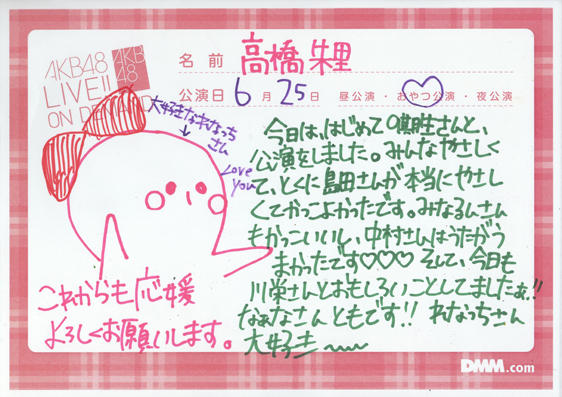 AKB48
LIVE!!
ON DEMAND
AKB
48
名前 高橋朱里
公演日 6月25日 昼公演・おやつ公演・夜公演
大好きなれなっち
さん
Love
you
今日は、はじめて9期生さんと、
公演をしました。みんなやさしく
て、とくに島田さんが本当にやさし
くてかっこよかったです。みなるんさん
もかっこいいし、中村さんはうたがう
まかったです♡♡♡ そして、今日も
川栄さんとおもしろいことしてましたぁ!!
なぁなさんともです!! れなっちさん
大好き〜
これからも応援
よろしくお願いします。
DMM.com